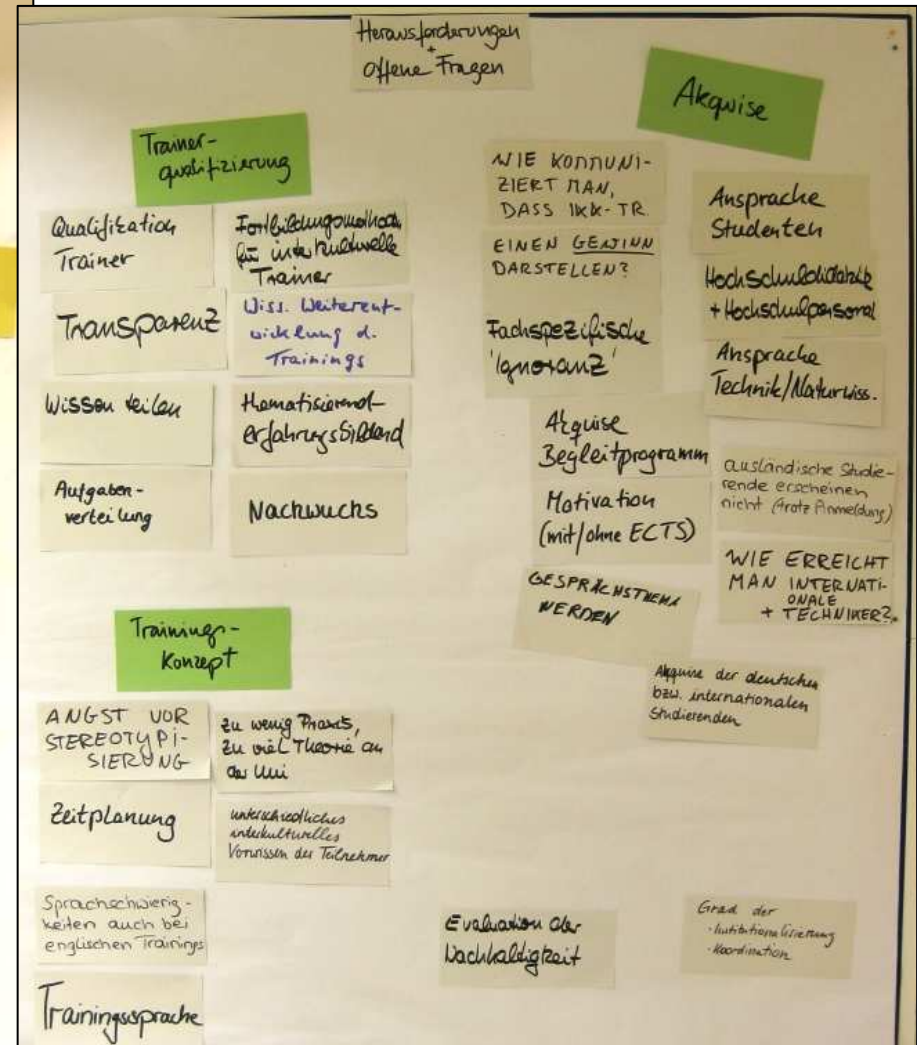 Herausforderungen
+
offene Fragen
Trainer-
qualifizierung
Qualifikation
Trainer
Fortbildungsmethoden
für interkulturelle
Trainer
Transparenz
Wiss. Weiterent-
wicklung d.
Trainings
Wissen teilen
thematisierend-
erfahrungsbildend
Aufgaben-
verteilung
Nachwuchs
Trainings-
Konzept
ANGST VOR
STEREOTYPI-
SIERUNG
zu wenig Praxis,
zu viel Theorie an
der Uni
Zeitplanung
unterschiedliches
interkulturelles
Vorwissen der Teilnehmer
Sprachschwierig-
keiten auch bei
englischen Trainings
Trainingssprache
Akquise
WIE KOMMUNI-
ZIERT MAN,
DASS IKK-TR.
EINEN GEWINN
DARSTELLEN?
Fachspezifische
'Ignoranz'
Ansprache
Studenten
Hochschuldidaktik
+ Hochschulpersonal
Ansprache
Technik/Naturwiss.
Akquise
Begleitprogramm
Motivation
(mit/ohne ECTS)
ausländische Studie-
rende erscheinen
nicht (trotz Anmeldung)
GESPRÄCHSTHEMA
WERDEN
WIE ERREICHT
MAN INTERNATI-
ONALE
+ TECHNIKER?
Akquise der deutschen
bzw. internationalen
Studierenden
Evaluation der
Nachhaltigkeit
Grad der
·Institutionalisierung
·Koordination